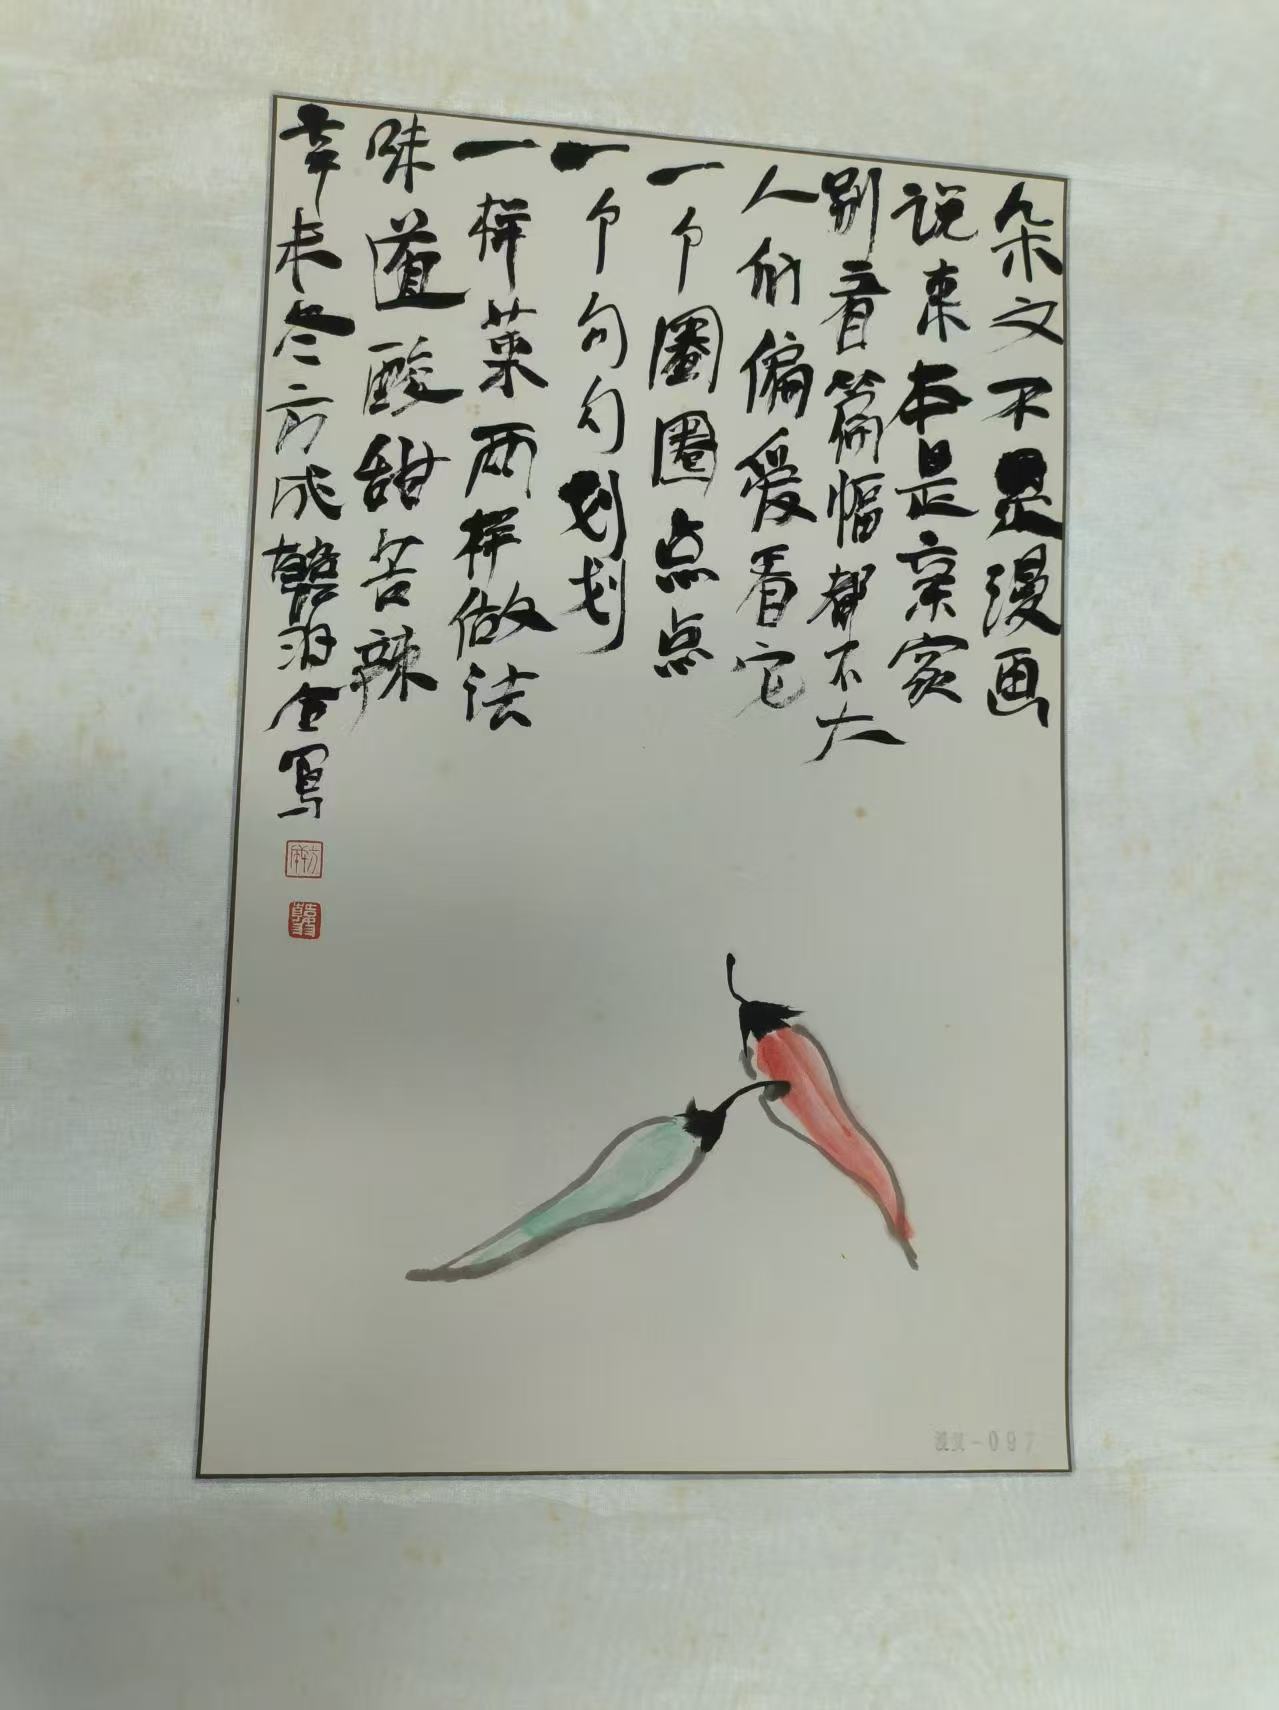 朵文不是漫画
说来本是亲家
别看篇幅都不大
人们偏爱看它
一个圈圈点点
一个勾勾划划
一样菜两样做法
味道酸甜苦辣
辛未冬方成韩羽合写
-097